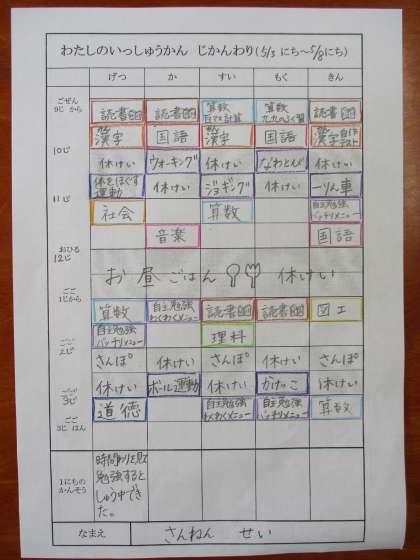 わたしのいっしゅうかん じかんわり(5/3 にち～5/8にち)
げつ か すい もく きん
ごぜん
9じ から
読書 読書 算数 算数 読書
漢字 国語 漢字 国語 漢字
10じ
休けい ウォーキング 休けい なわとび 休けい
11じ
体をほぐす運動 休けい ジョギング 休けい 一りん車
社会 算数 自主勉強バッチリメニュー
音楽 国語
おひる
12じ
お昼ごはん 休けい
ごご
1じから
算数 自主勉強わくわくメニュー 読書 読書 図工
自主勉強バッチリメニュー 理科
ごご
2じ
さんぽ 休けい さんぽ 休けい さんぽ
ごご
3じ
休けい ボール運動 休けい かけっこ 休けい
ごご
3じ はん
道徳 自主勉強わくわくメニュー 自主勉強バッチリメニュー 算数
1にちの
かんそう
時間わりを見て
勉強すると
しゅう中でき
た。
なまえ さんねん せい